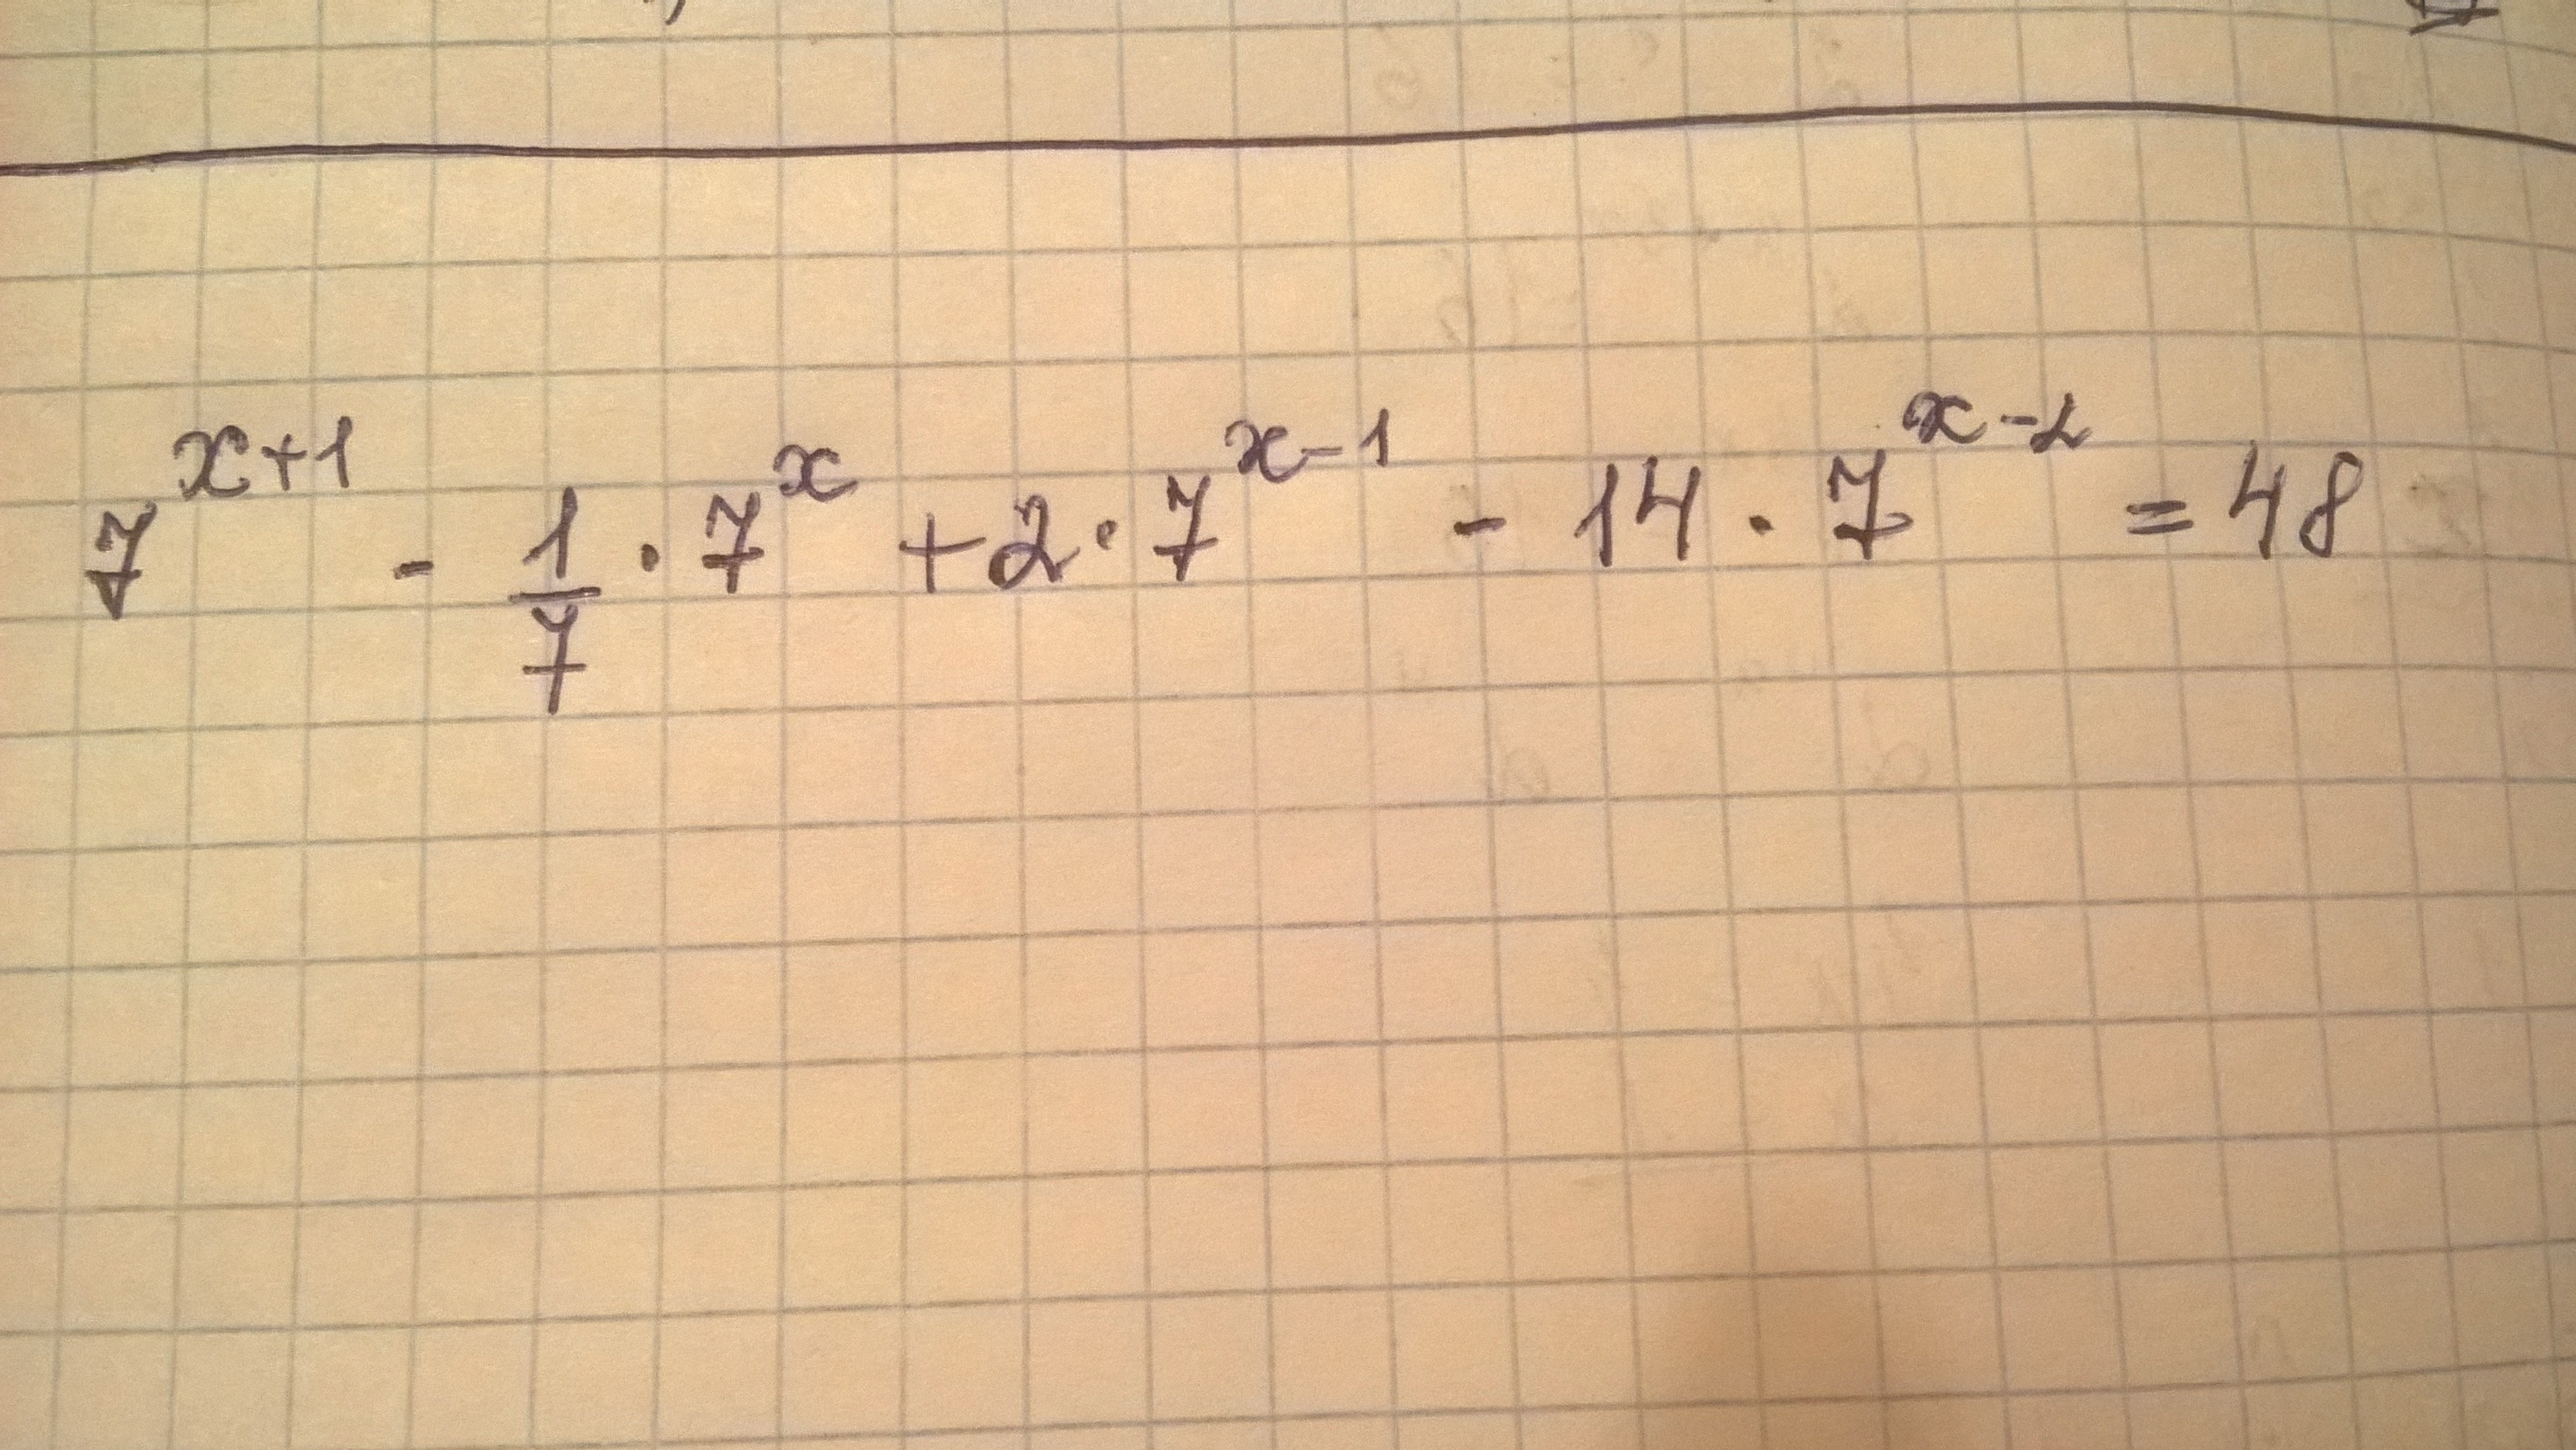 7^{x+1} - \frac{1}{7} \cdot 7^{x} + 2 \cdot 7^{x-1} - 14 \cdot 7^{x-2} = 48